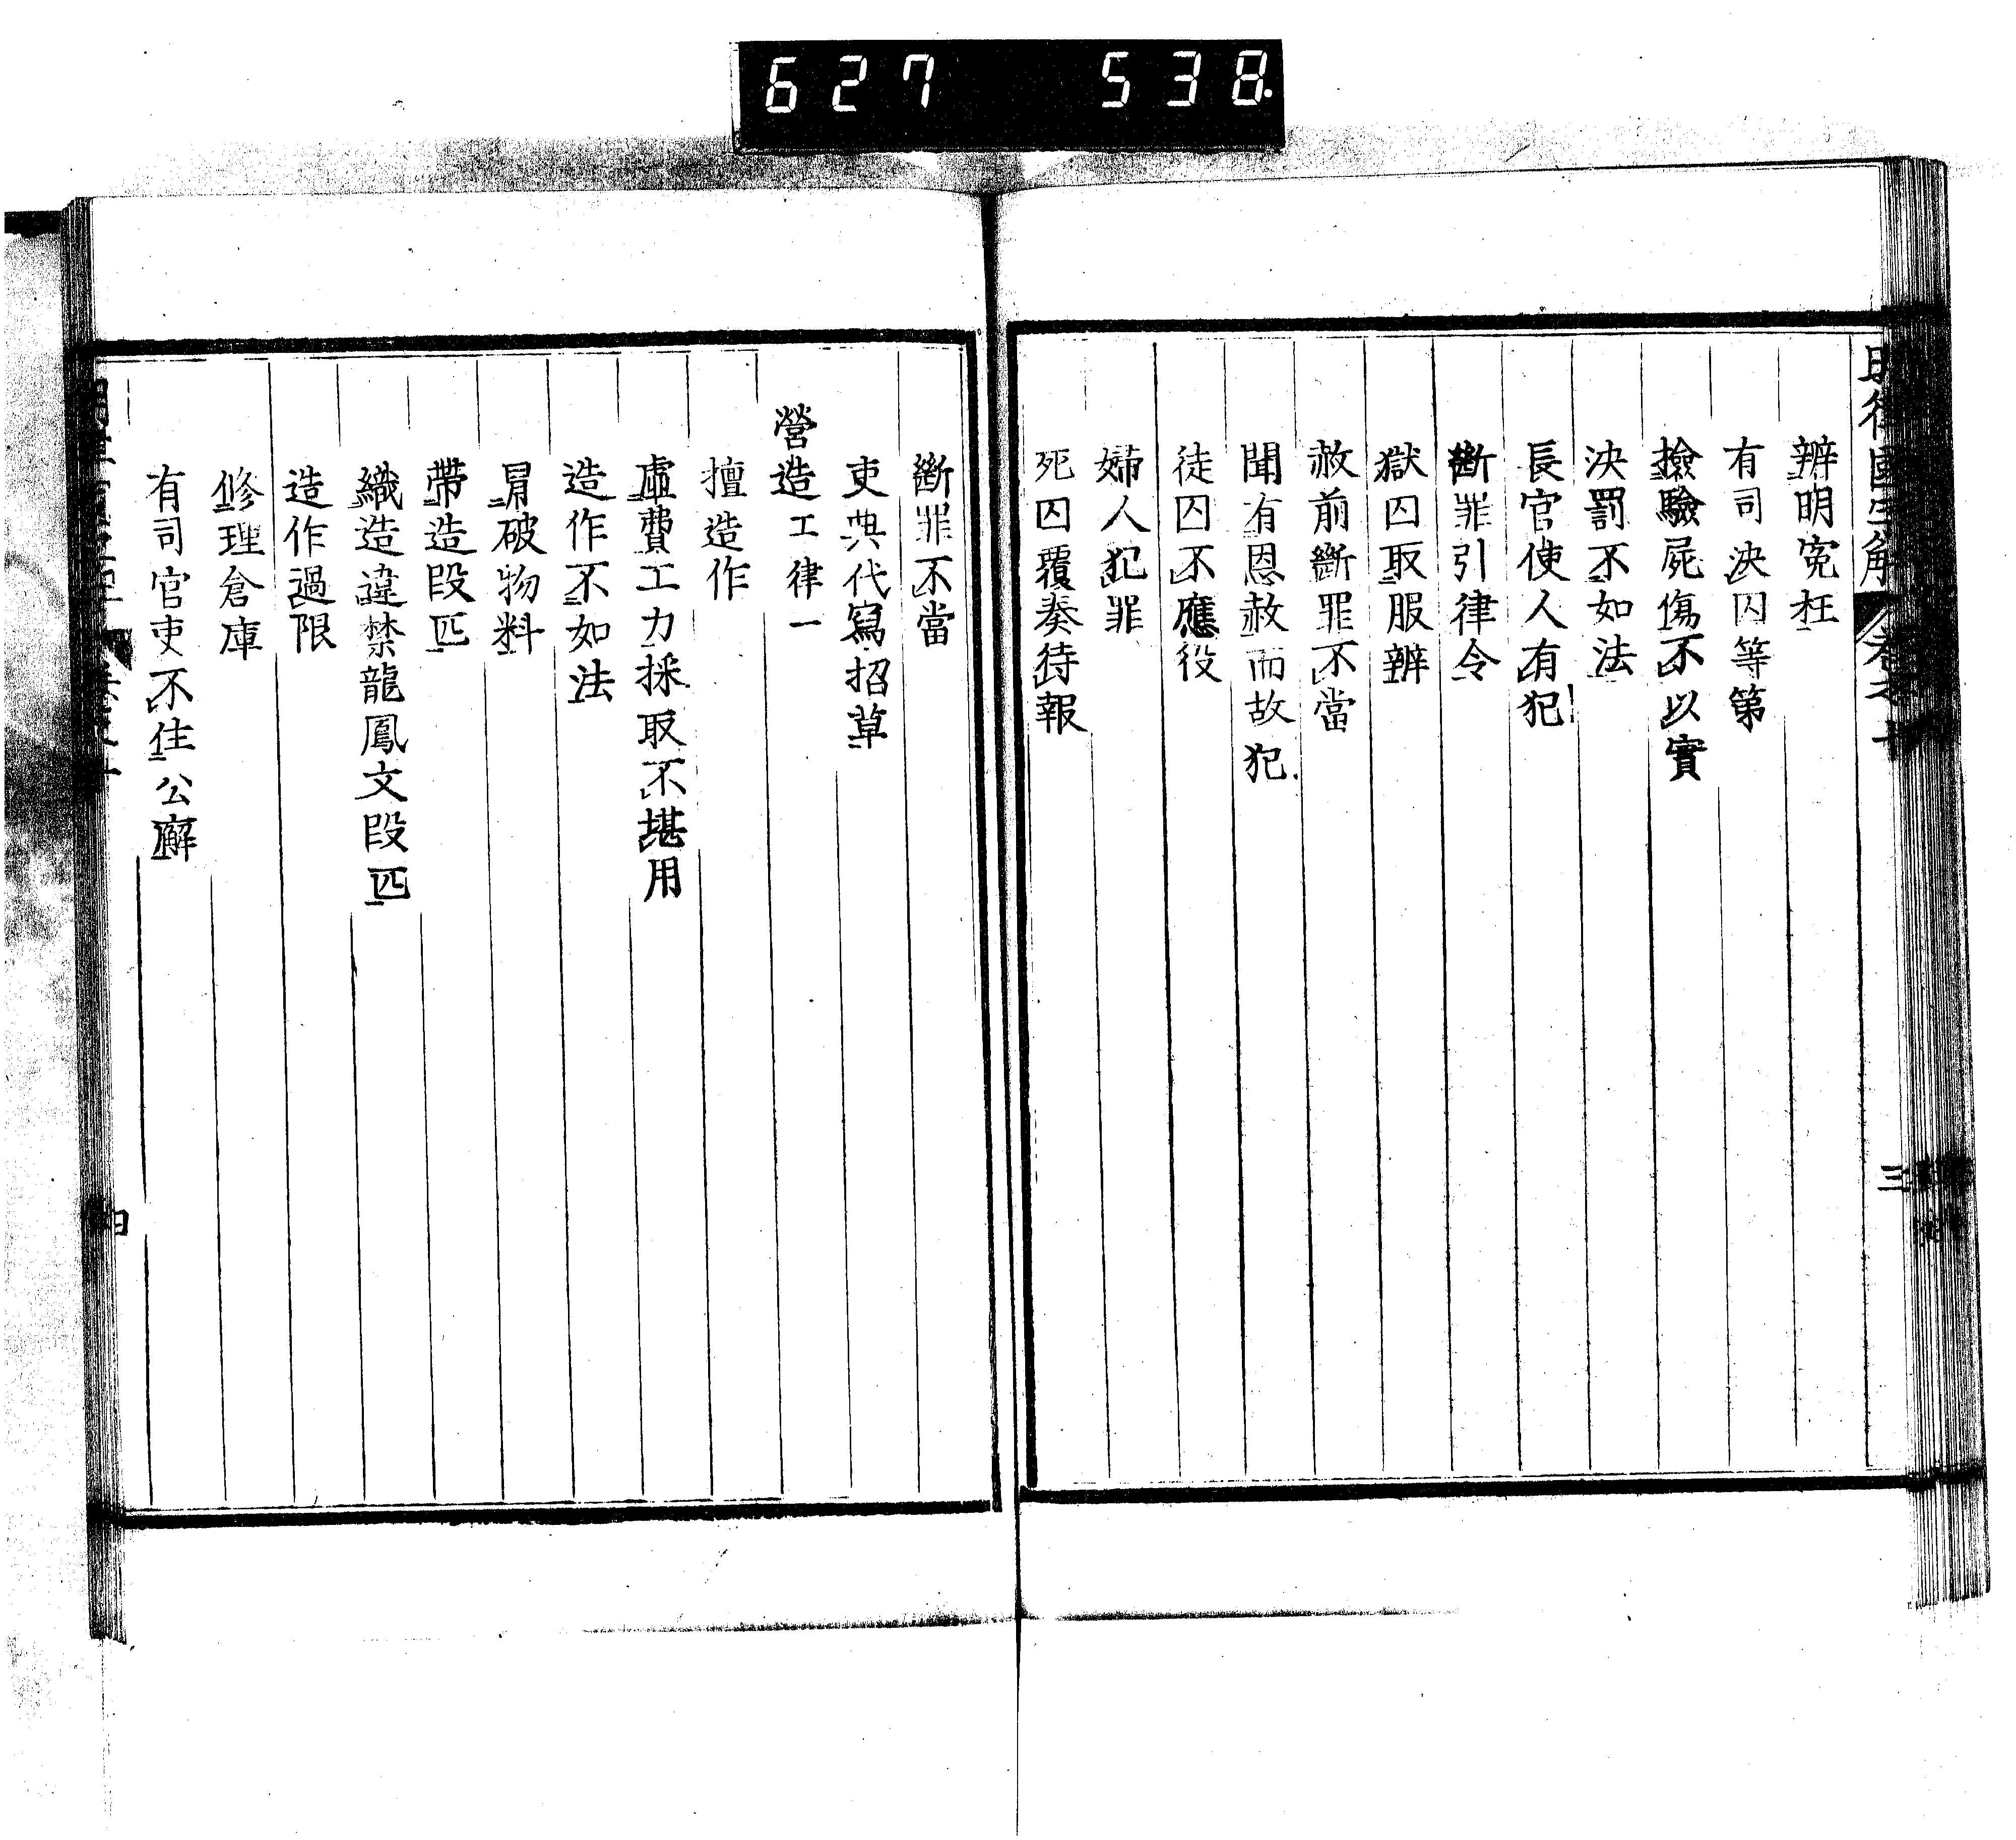 627 538.
辨明寃枉
有司決囚等第
撿驗屍傷不以實
決罰不如法
長官使人有犯
斷罪引律令
獄囚取服辨
赦前斷罪不當
聞有恩赦而故犯
徒囚不應役
婦人犯罪
死囚覆奏待報
三
斷罪不當
吏典代寫招草
營造工律一
擅造作
虛費工力採取不堪用
造作不如法
冒破物料
帶造段匹
織造違禁龍鳳文段匹
造作過限
修理倉庫
有司官吏不住公廨